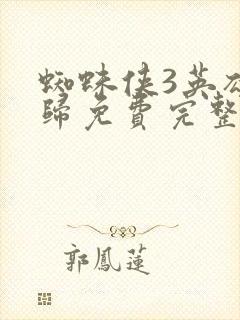 蜘蛛侠3英
歸免費完整
郭鳳蓮